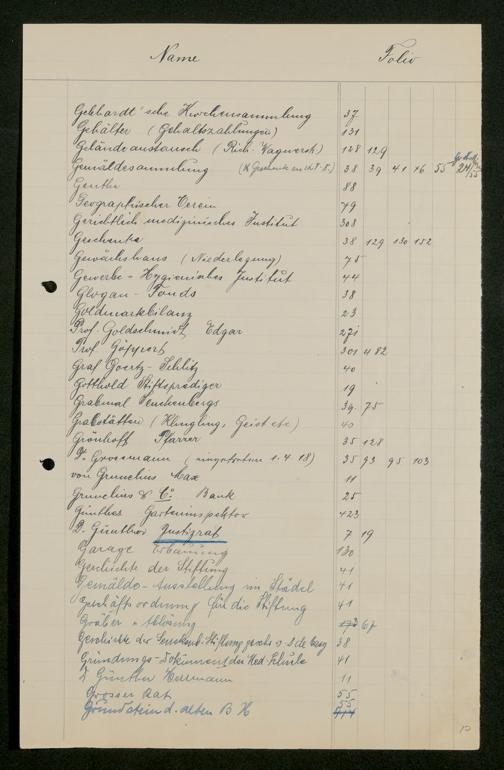 Name Folio
Gebhardt'sche Kirchensammlung 37
Gehälter (Gehaltszahlungen) 131
Geländeaustausch (Rich. Wagnerstr.) 128 129
Gemäldesammlung 38 39 41 76 55
Genthe 88
Geographischer Verein 79
Gerichtlich medizinisches Institut 308
Geschenke 38 129 130 152
Gewächshaus (Niederlegung) 75
Gewerbe-Hygienisches Institut 44
Glogau-Fonds 38
Goldmarkbilanz 23
Prof. Goldschmidt, Edgar 271
Prof Göppert 301 482
Graf Goertz-Schlitz 40
Gotthold Stiftsprediger 19
Grabmal Senckenbergs 39. 75
Grabstätten (Klingling, Geist etc) 40
Grönhoff Pfarrer 35 128
Dr. Grossmann (eingetreten 1.4.18) 35 93 95 103
von Grunelius Max 11
Grunelius & Cie. Bank 25
Günther Garteninspektor 423
Dr. Günther Justizrat 7 19
Garage Erbauung 130
Geschichte der Stiftung 41
Gemälde-Ausstellung im Städel 41
Geschäftsordnung für die Stiftung 41
Gräber-Ablösung 67
Geschichte der Senckenb. Stiftung 38
Gründungs-Dokument der Med. Schule 41
Dr Günther Herrmann 11
Grosser Rat 55
Grundstein d. alten B H 55